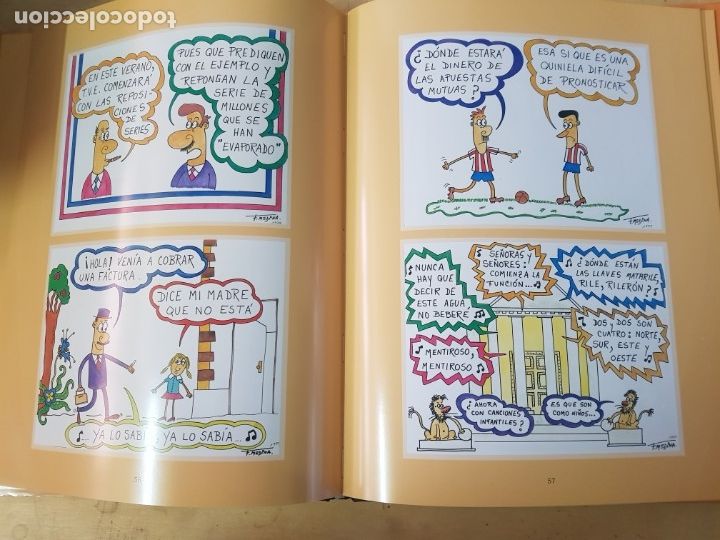 todocoleccion
EN ESTE VERANO,
T.V.E. COMENZARÁ
CON LAS REPOSI-
CIONES
DE
SERIES
PUES QUE PREDIQUEN
CON EL EJEMPLO Y
REPONGAN LA
SERIE DE
MILLONES
QUE SE
HAN
"EVAPORADO"
F. MEDINA.
¡HOLA! VENÍA A COBRAR
UNA FACTURA...
DICE MI MADRE
QUE NO ESTÁ
... YA LO SABÍA, YA LO SABÍA...
F. MEDINA.
¿DÓNDE ESTARÁ
EL DINERO DE
LAS APUESTAS
MUTUAS?
ESA SI QUE ES UNA
QUINIELA DIFÍCIL
DE PRONOSTICAR
F. MEDINA.
NUNCA
HAY QUE
DECIR DE
ESTE AGUA
NO BEBERE
SEÑORAS Y
SEÑORES:
COMIENZA LA
FUNCIÓN...
¿DÓNDE ESTÁN
LAS LLAVES MATARILE,
RILE, RILERÓN?
MENTIROSO,
MENTIROSO
DOS Y DOS SON
CUATRO: NORTE,
SUR, ESTE Y
OESTE
¿AHORA
CON CANCIONES
INFANTILES?
ES QUE SON
COMO NIÑOS...
F. MEDINA.
57